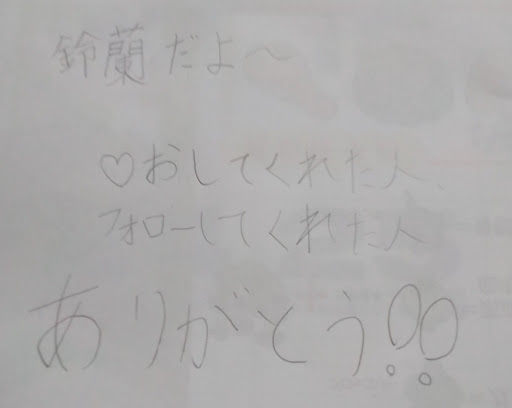 鈴蘭だよ～
♡おしてくれた人、
フォローしてくれた人
ありがとう!!